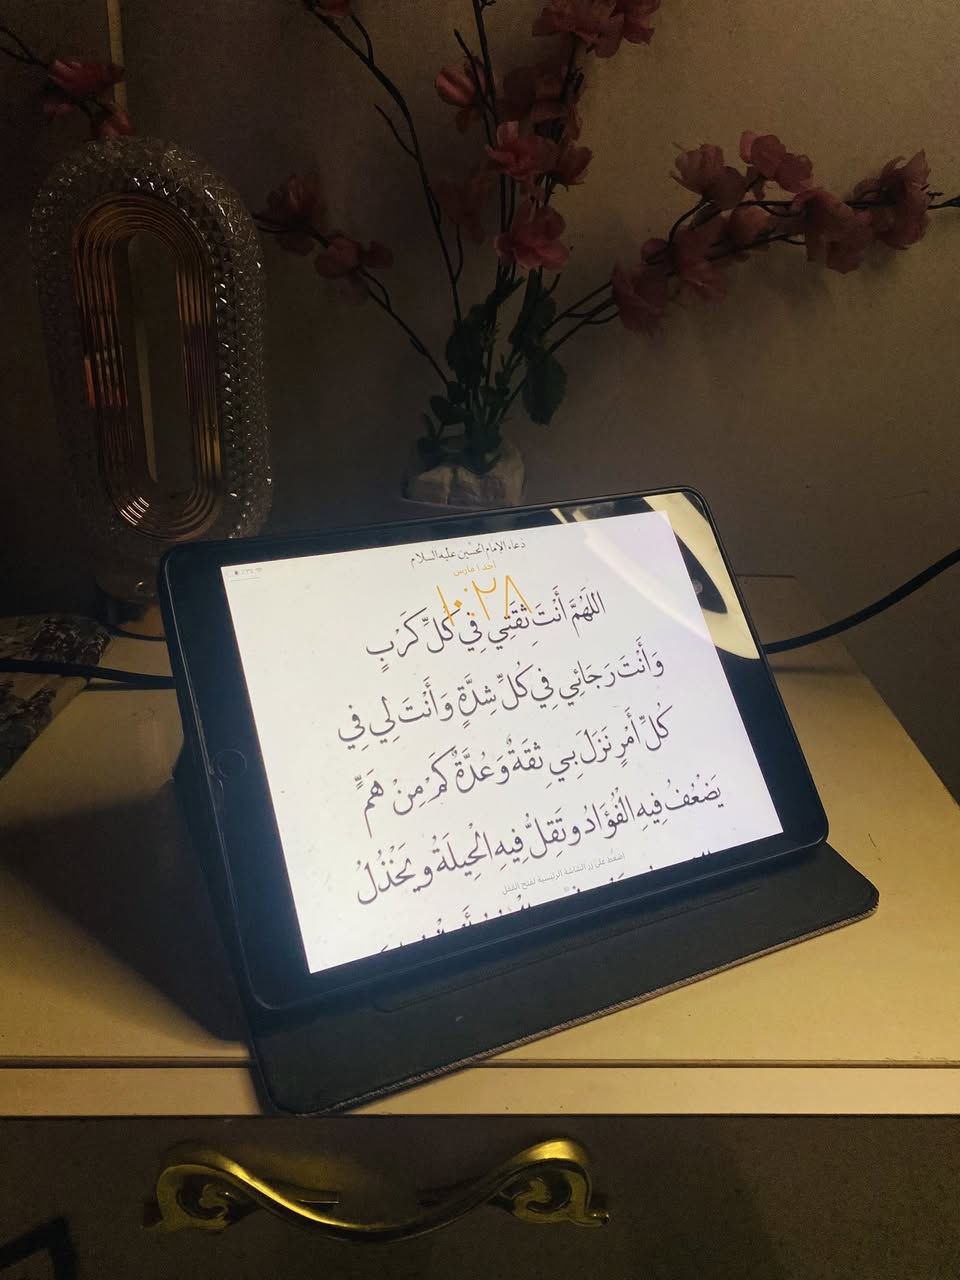 دعاء الإمام الحسين عليه السلام
أحد ١ مارس
١٠:٢٨
اللَّهُمَّ أَنْتَ ثِقَتِي فِي كُلِّ كَرْبٍ
وَأَنْتَ رَجَائِي فِي كُلِّ شِدَّةٍ وَأَنْتَ لِي فِي
كُلِّ أَمْرٍ نَزَلَ بِي ثِقَةٌ وَعُدَّةٌ كَمْ مِنْ هَمٍّ
يَضْعُفُ فِيهِ الْفُؤَادُ وتَقِلُّ فِيهِ الْحِيلَةُ ويَخْذُلُ
اضغط على زر الشاشة الرئيسية لفتح القفل